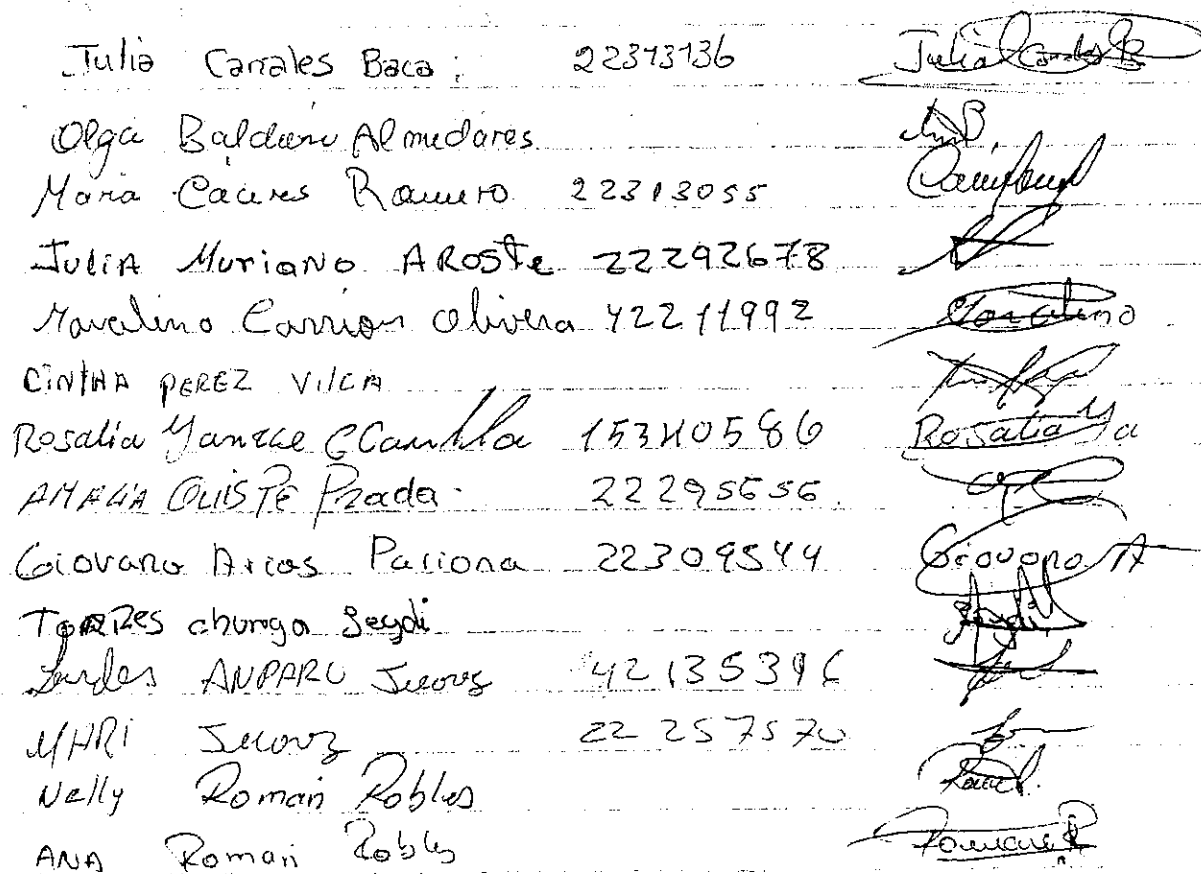 Julia Canales Baca: 22313136 Julia Canales B
Olga Balderu Almedares
Maria Cáceres Romero 22313055
JULIA MURIANO AROSTE 22292678
Marcelino Carrion Olivera 42211992 Marcelino
CINTHA PEREZ VILCA
Rosalia Yanzce CCanlla 15340586 Rosalia Ya
AMALIA QUISPE Prada. 22295656.
Giovana Arias Pariona 22309544 Giovana A
TORRES chunga Seydi Seydi
Lurdes ANPARO 42135396
MARI 22257570
Nelly Roman Robles
ANA Roman Robles Romane R